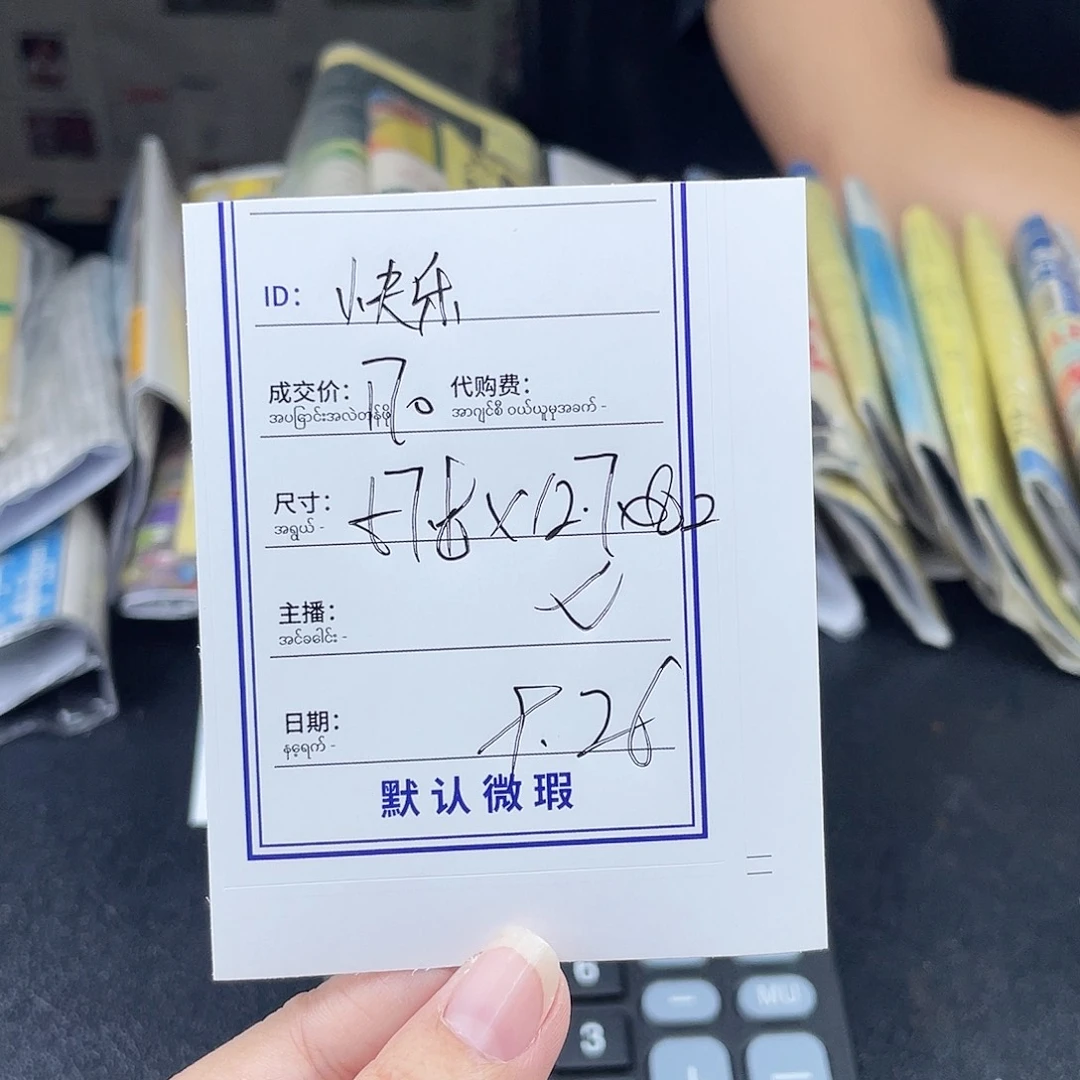 ID: 快乐
成交价: 170 代购费:
အပြောင်းအလဲတန်ဖိုး အာဂျင်စီ ဝယ်ယူမှုအခက် -
尺寸: 57.6×12.7×8.2
အရွယ် -
主播: ✓
အင်ခခေါင်း -
日期: 7.26
နေ့ရက် -
默认微瑕
6
- MU
3